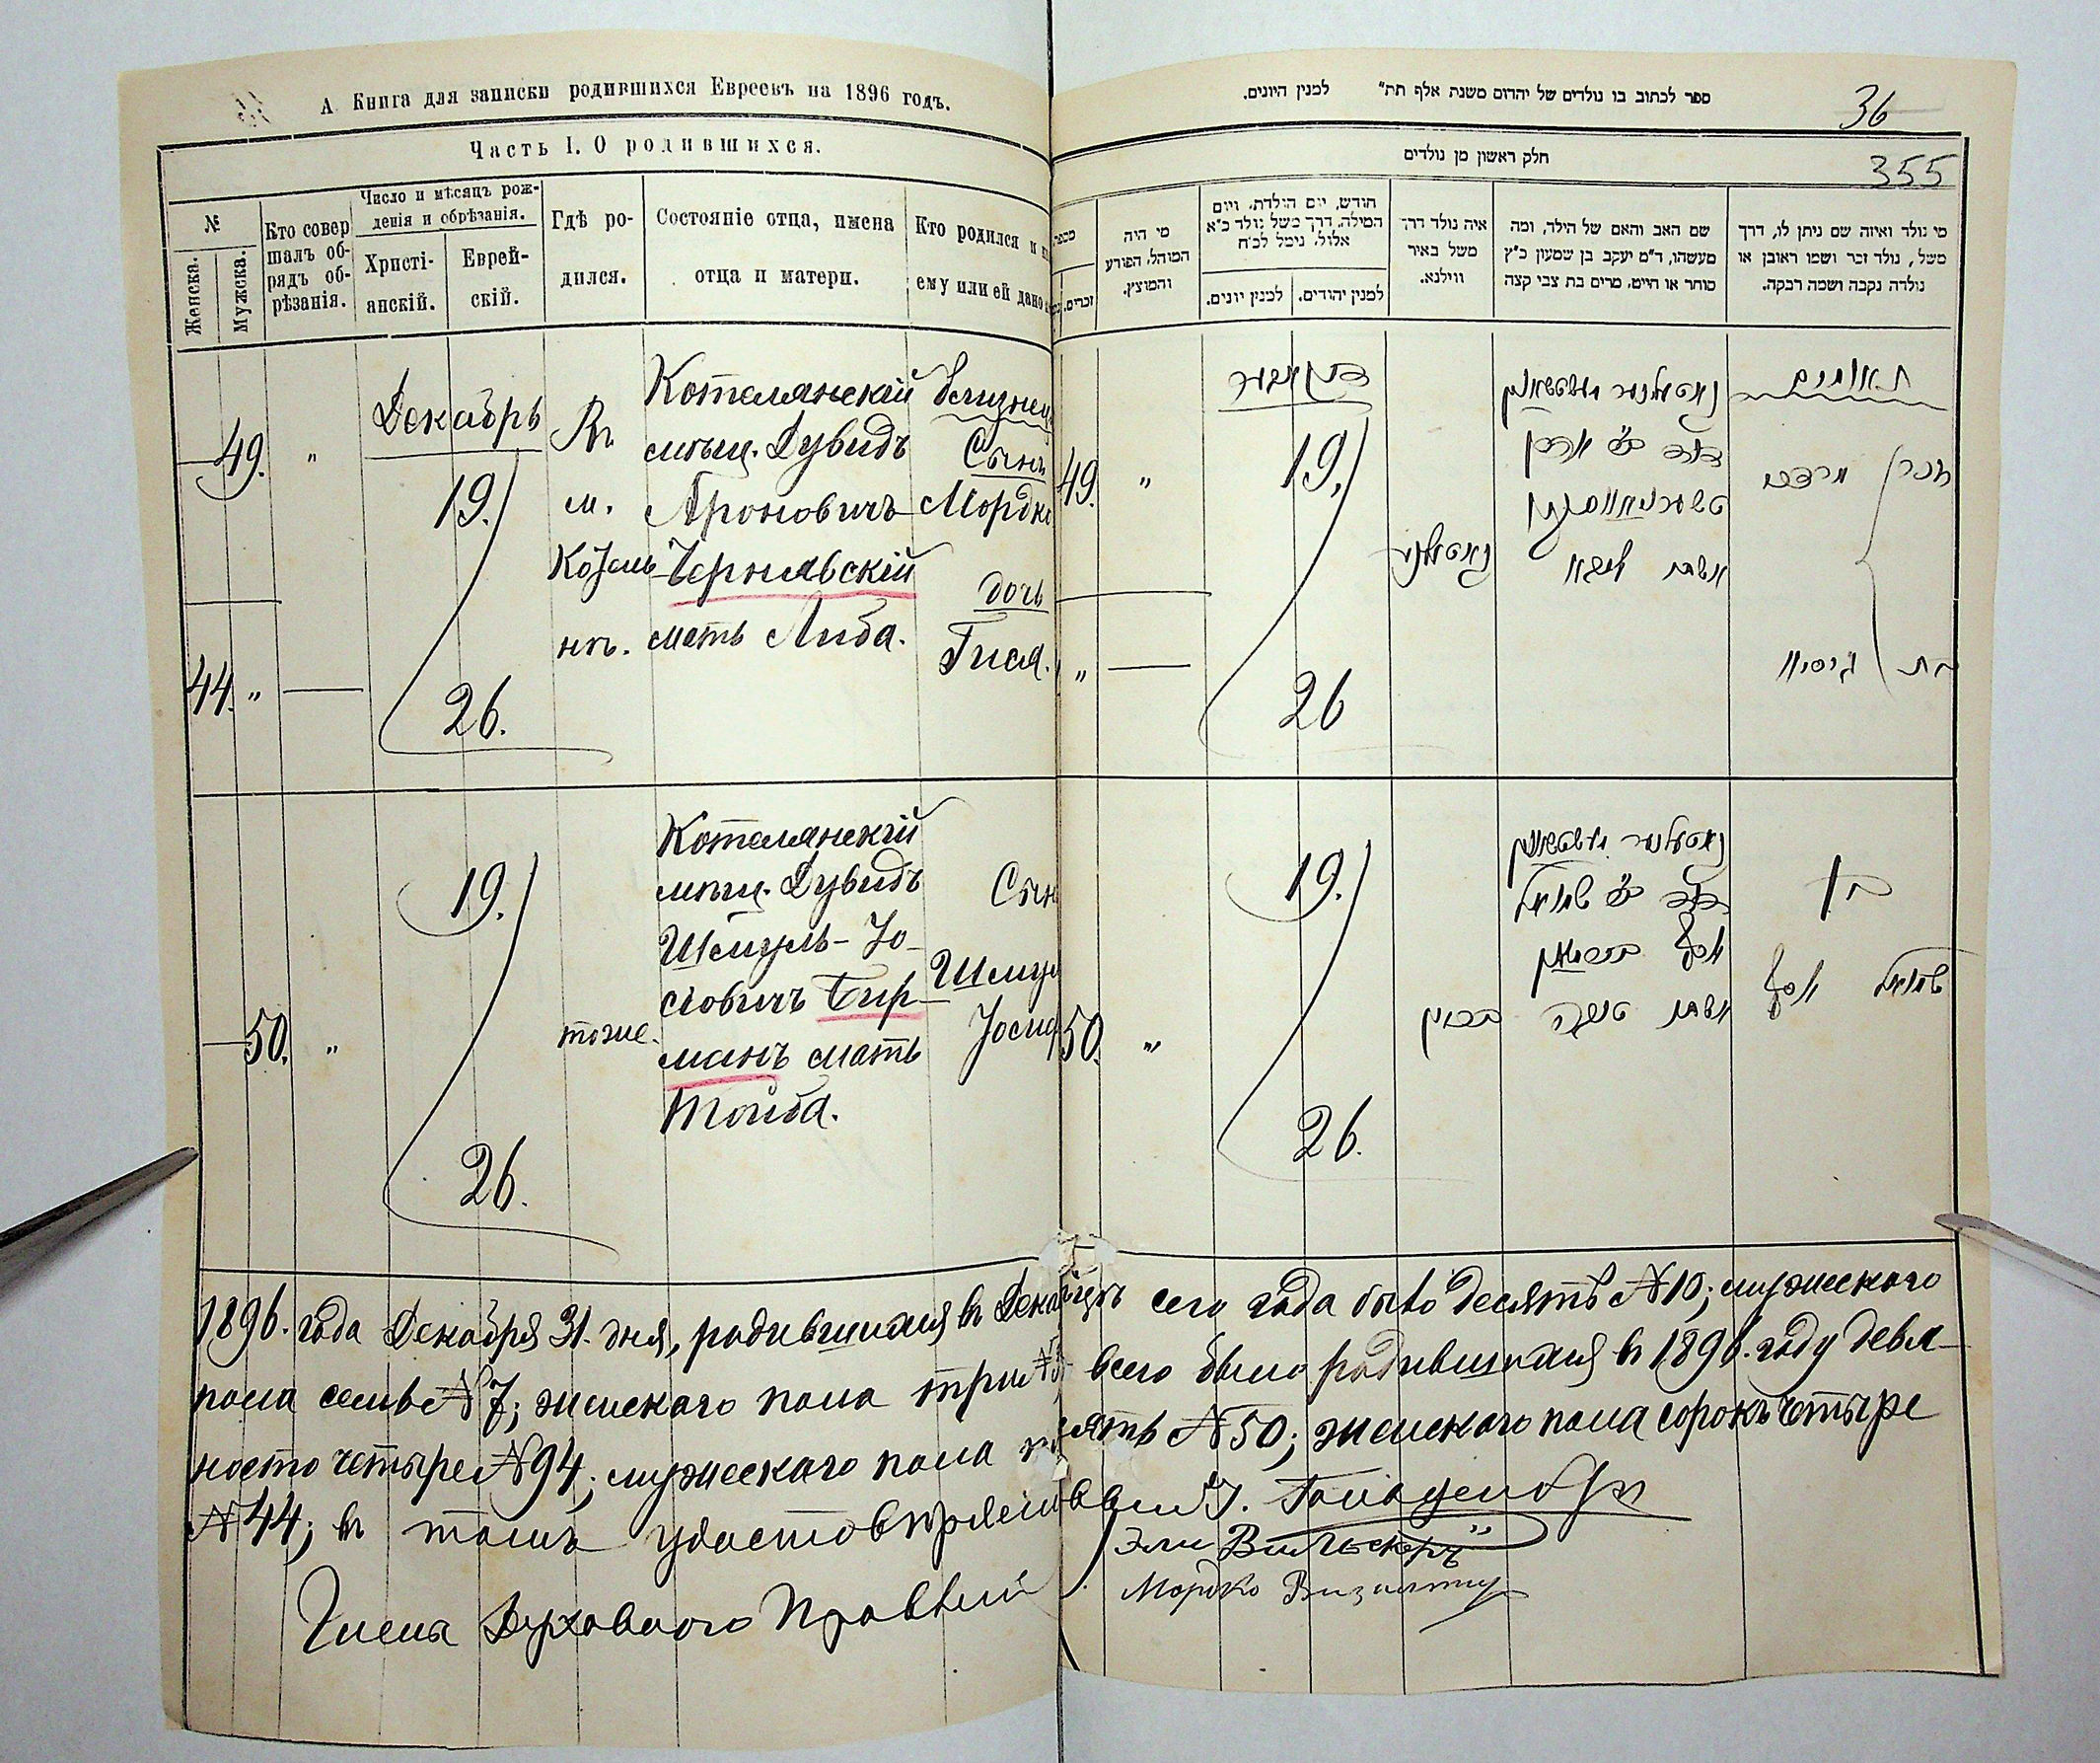 А. Книга для записки родившихся Евреевъ на 1896 годъ.
Часть I. О родившихся.
№
Женска.
Мужска.
Кто совер
шалъ об-
рядъ об-
рѣзанія.
Число и мѣсяцъ рож-
денія и обрѣзанія.
Христі-
анскій.
Еврей-
скій.
Гдѣ ро-
дился.
Состояніе отца, имена
отца и матери.
Кто родился и
ему или ей дано
49.
"
Декабрь
19.
26.
44. "
Въ
м.
Козель
нѣ.
Котелянскій
мѣщ. Дувидъ
Ароновичъ
Чернявскій
мать Либа.
близнец
Сынъ
Мордко
дочь
Гися.
50.
"
19.
26.
тоже.
Котелянскій
мѣщ. Дувидъ
Шмуль-Іо-
сіовичъ Бир-
манъ мать
Тойба.
Сын
Шмул
Іосиф
ספר לכתוב בו נולדים של יהדום משנת אלף תת״ למנין היונים.
36
חלק ראשון מן נולדים
355
זכרים.
מי היה
המוהל, הפורע
והמוצץ.
חודש, יום הולדת, ויום
המילה, דרך משל נולד כ״א
אלול, נימל לכ״ח
למנין יונים.
למנין יהודים.
איה נולד דרך
משל באיר
ווילנא.
שם האב והאם של הילד, ומה
מעשהו, ד״מ יעקב בן שמעון כ״ץ
סוחר או חייט, מרים בת צבי קצה
מי נולד ואיזה שם ניתן לו, דרך
משל, נולד זכר ושמו ראובן או
נולדה נקבה ושמה רבקה.
49.
"
דעקאבער
19.
26
תאומים
דוד ב״ר אהרן
אשתו ליבא
מרדכי
בת
גיסיא
50.
"
19.
26.
דוד ב״ר שמואל
יוסף בירמאן
אשתו טויבה
בן
שמואל יוסף
1896. года Декабря 31. дня, родившихся въ Декабрѣ сего года было десять №10; мужескаго
пола семь №7; женскаго пола три №3 всего было родившихся въ 1896. году девя-
носто четыре №94; мужескаго пола пятьдесятъ №50; женскаго пола сорокъ четыре
№44; въ томъ удостовѣряемъ
Эли Вильскеръ
Мордко
Члены Духовного Правленія